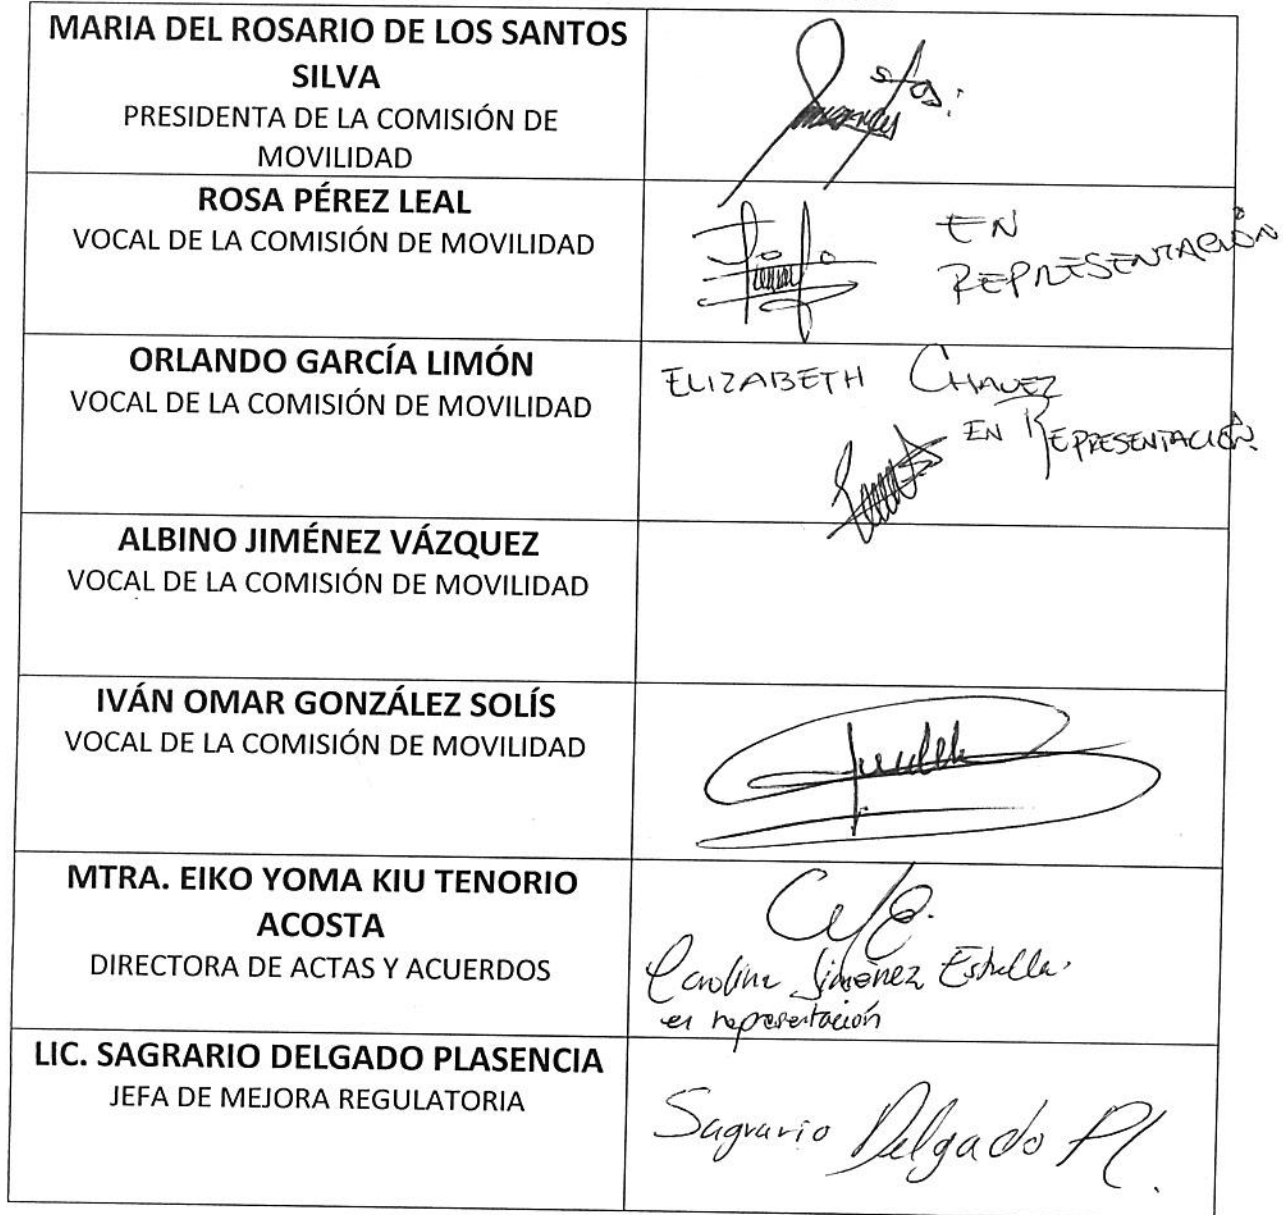 MARIA DEL ROSARIO DE LOS SANTOS
SILVA
PRESIDENTA DE LA COMISIÓN DE
MOVILIDAD
ROSA PÉREZ LEAL
VOCAL DE LA COMISIÓN DE MOVILIDAD
EN
REPRESENTACIÓN
ORLANDO GARCÍA LIMÓN
VOCAL DE LA COMISIÓN DE MOVILIDAD
ELIZABETH CHAVEZ
EN REPRESENTACIÓN
ALBINO JIMÉNEZ VÁZQUEZ
VOCAL DE LA COMISIÓN DE MOVILIDAD
IVÁN OMAR GONZÁLEZ SOLÍS
VOCAL DE LA COMISIÓN DE MOVILIDAD
MTRA. EIKO YOMA KIU TENORIO
ACOSTA
DIRECTORA DE ACTAS Y ACUERDOS
Carolina Jiménez Estrella
en representación
LIC. SAGRARIO DELGADO PLASENCIA
JEFA DE MEJORA REGULATORIA
Sagrario Delgado Pl.